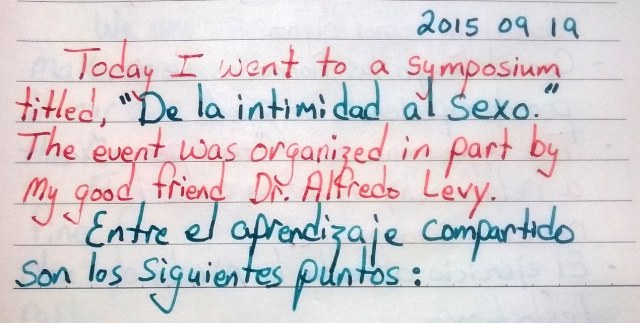 2015 09 19
Today I went to a symposium
titled, "De la intimidad al sexo."
The event was organized in part by
my good friend Dr. Alfredo Levy.
Entre el aprendizaje compartido
son los siguientes puntos: